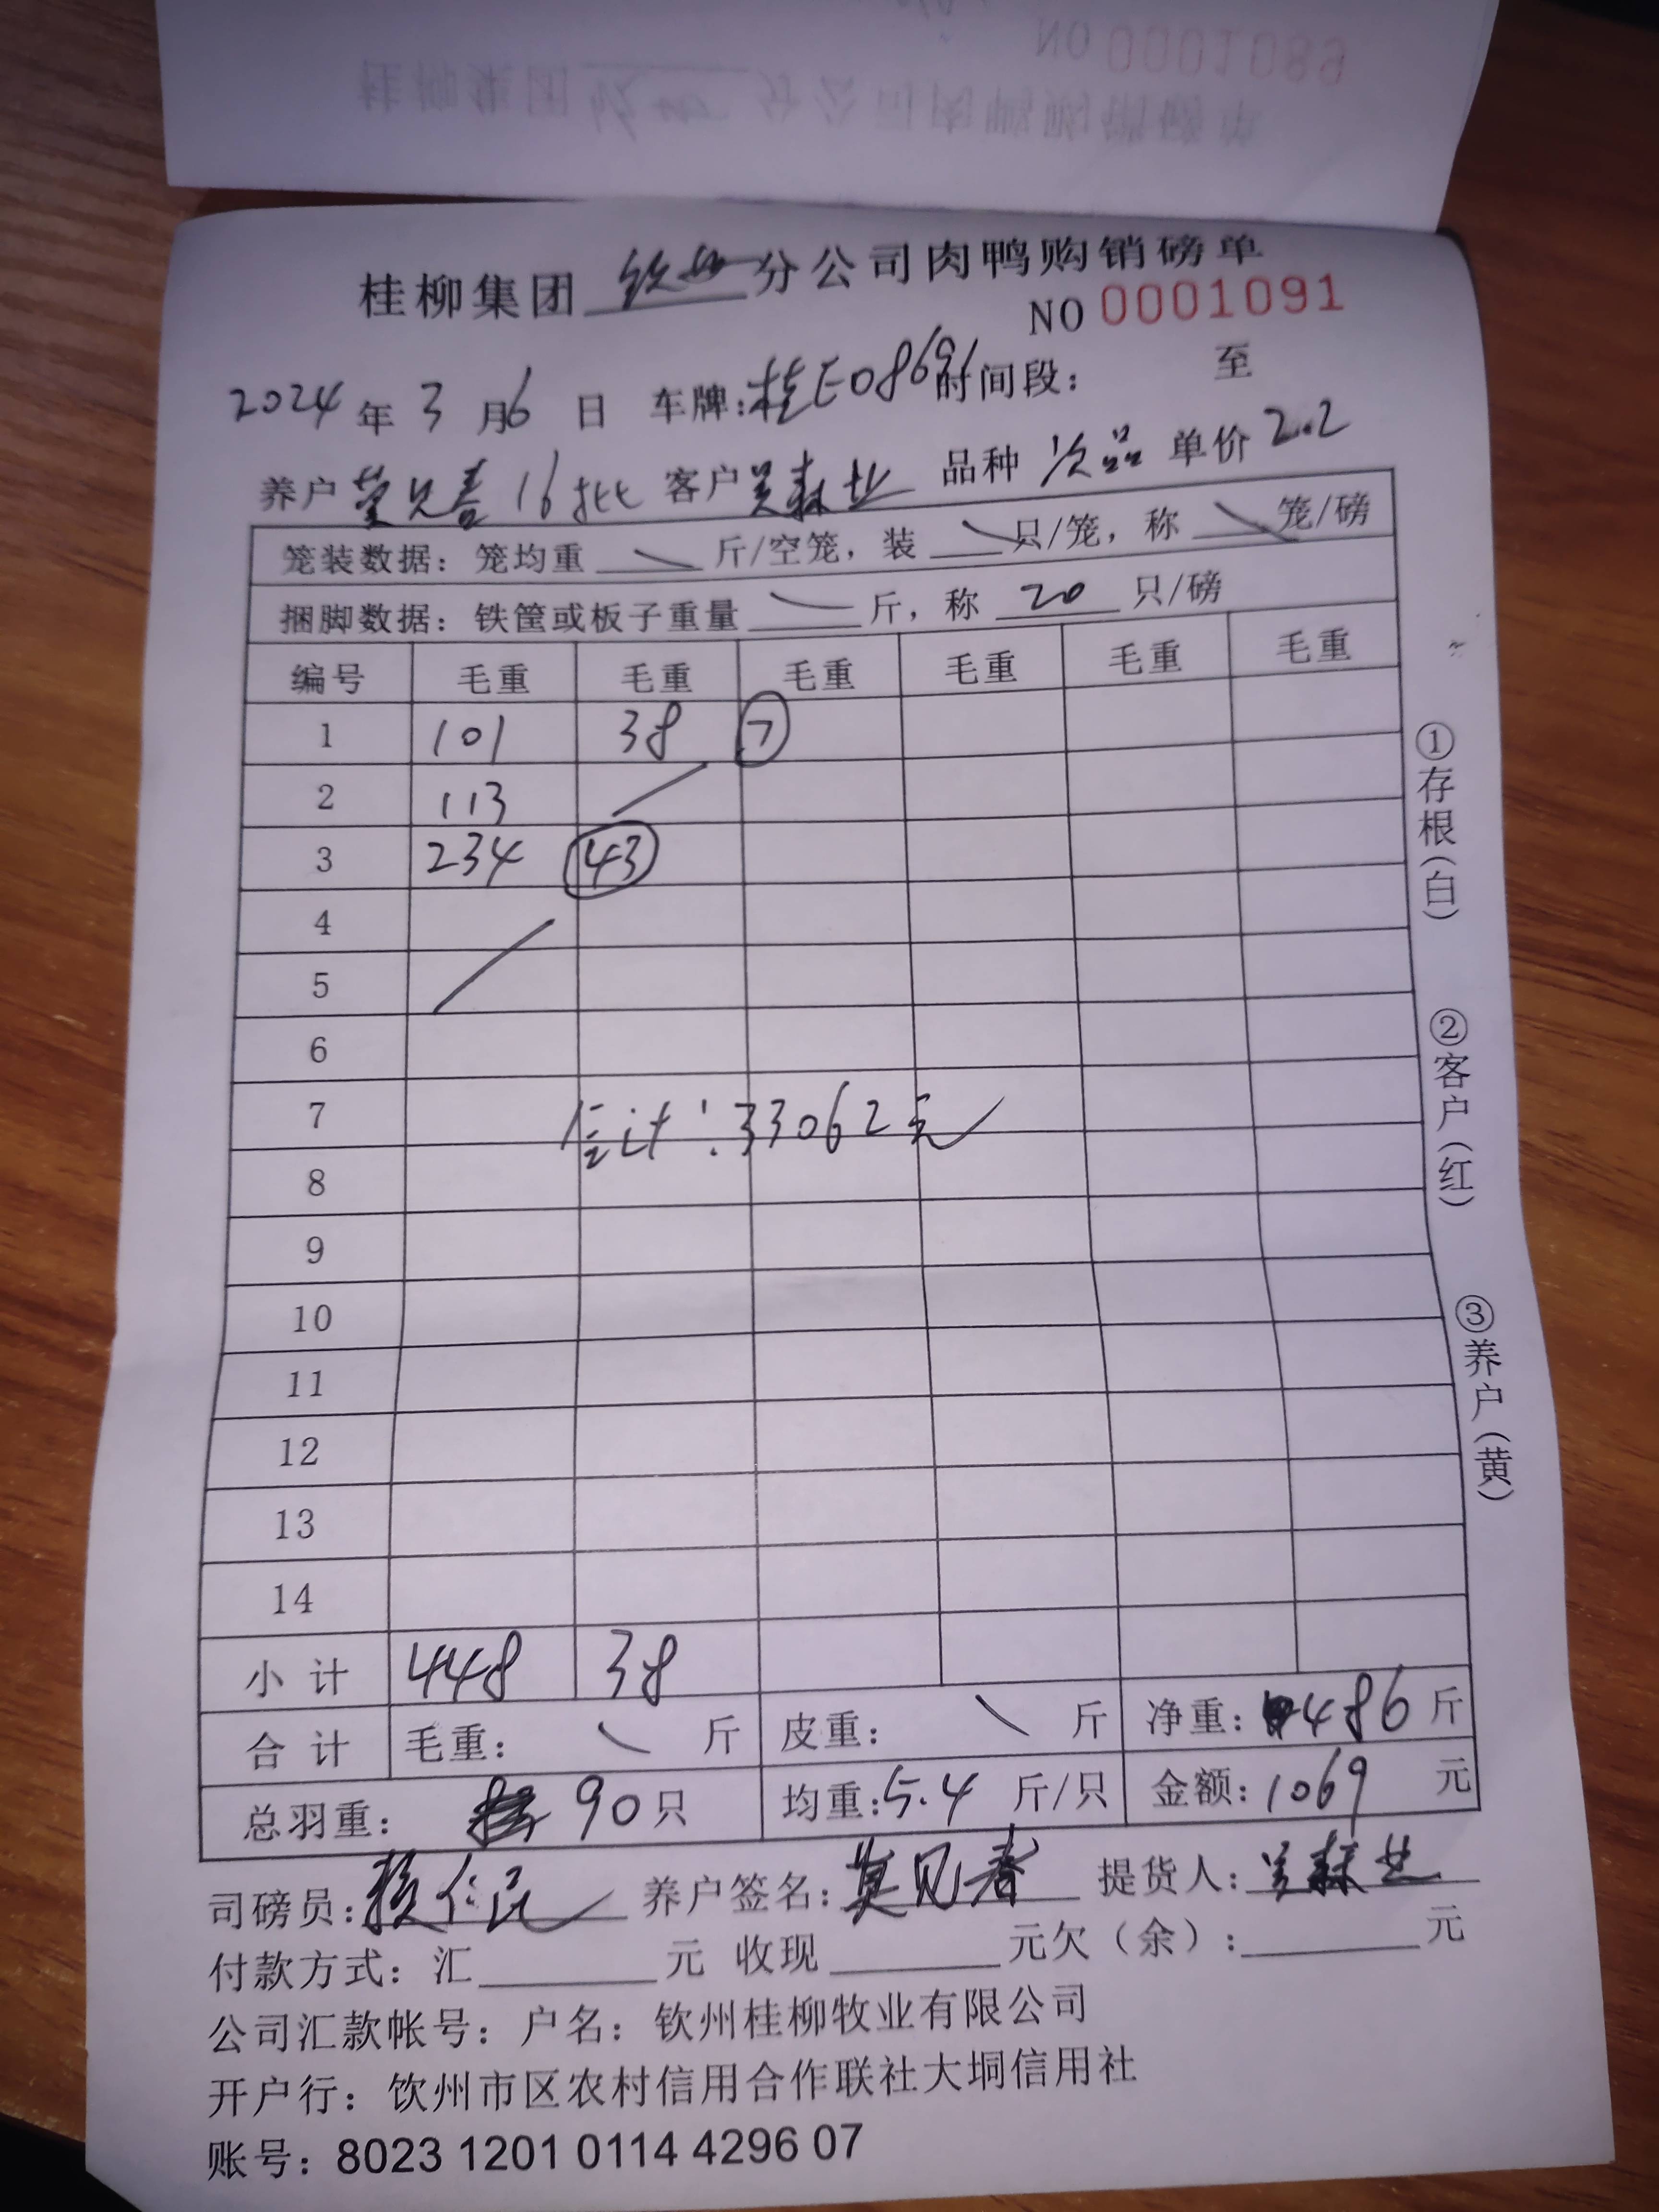 NO 0001089
桂柳集团 钦州 分公司肉鸭购销磅单
桂柳集团 钦州 分公司肉鸭购销磅单
NO 0001091
2024 年 3 月 6 日 车牌: 桂E08691 时间段: 至
养户 莫见春 16批 客户 吴森业 品种 次品 单价 2.2
笼装数据: 笼均重 斤/空笼, 装 只/笼, 称 笼/磅
捆脚数据: 铁筐或板子重量 斤, 称 20 只/磅
编号 毛重 毛重 毛重 毛重 毛重 毛重
1 101 38 7
2 113
3 234 43
4
5
6
7
合计: 33062元
8
9
10
11
12
13
14
小计 448 38
合计 毛重: 斤 皮重: 斤 净重: 486 斤
总羽重: 90 只 均重: 5.4 斤/只 金额: 1069 元
司磅员: 仁民 养户签名: 莫见春 提货人: 吴森业
付款方式: 汇 元 收现 元欠(余): 元
公司汇款帐号: 户名: 钦州桂柳牧业有限公司
开户行: 钦州市区农村信用合作联社大垌信用社
账号: 8023 1201 0114 4296 07
①存根(白)
②客户(红)
③养户(黄)